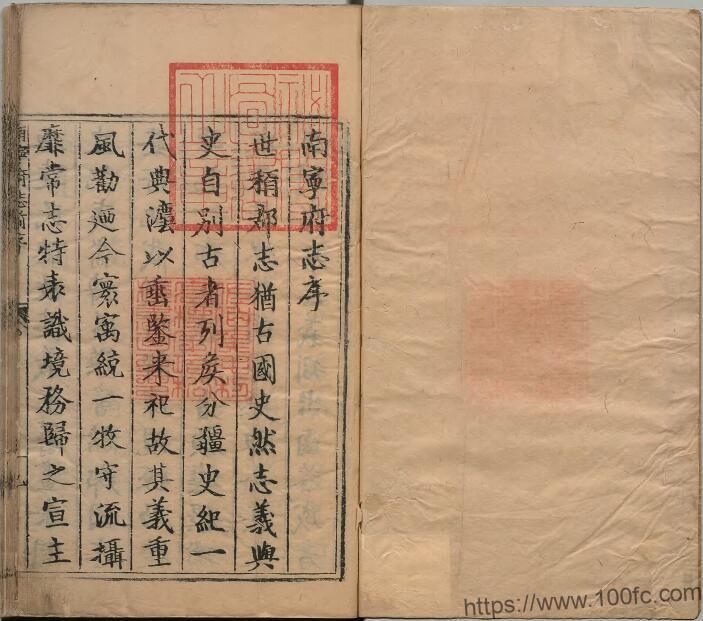 南寧府志序
世稱郡志猶古國史然志義與
史自別古者列矦分疆史紀一
代典灋以埀鑒来祀故其義重
風勸廼今寰㝢統一牧守流攝
靡常志特表識境務歸之宣主
https://www.100fc.com